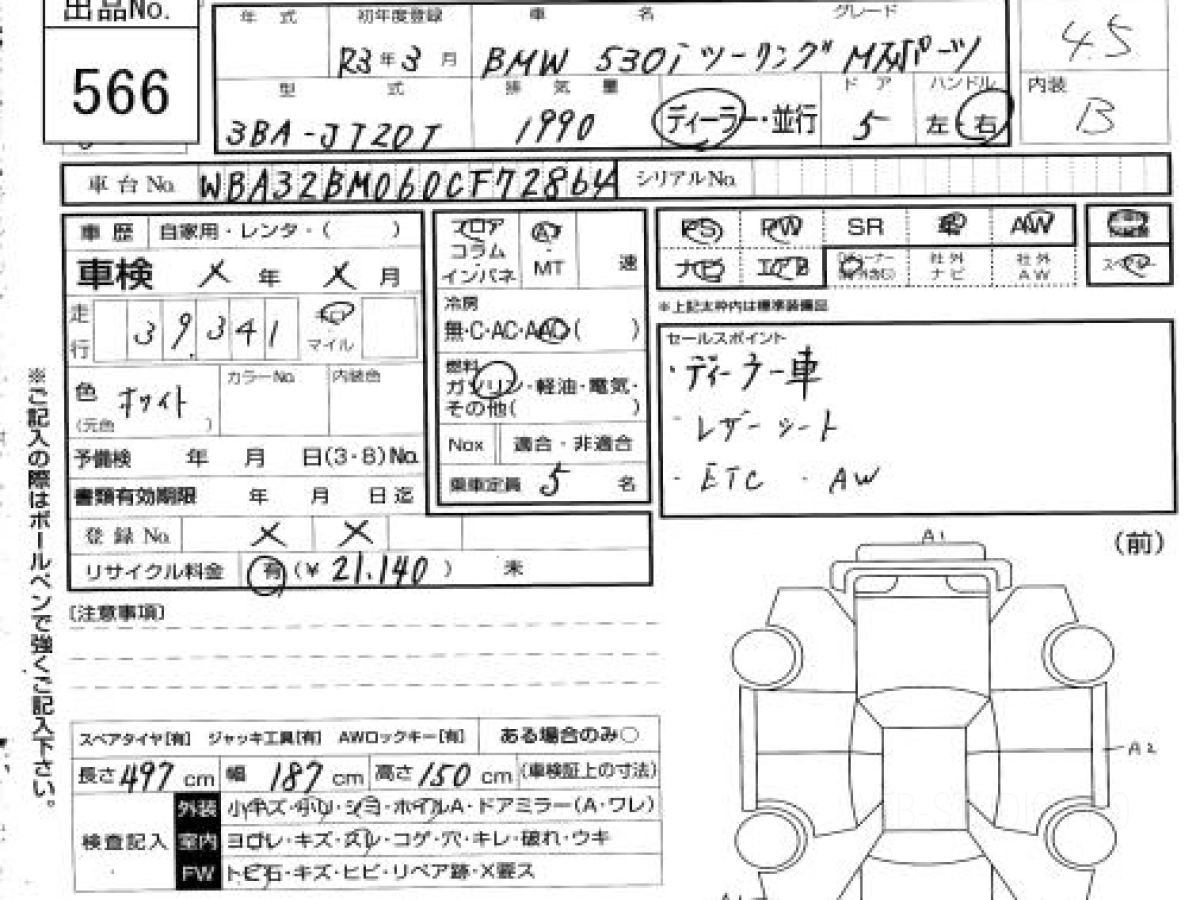 出品No.
566
年 式 初年度登録 車 名 グレード
R3年3月 BMW 530i ツーリング Mスポーツ 4.5
型 式 排 気 量 ドア ハンドル 内装
3BA-JT20T 1990 ディーラー・並行 5 左 右 B
車台No. WBA32BM060CF72864 シリアルNo.
車歴 自家用・レンタ・( )
車検 X 年 X 月
走行 39,341 キロ マイル
色 ホワイト カラーNo. 内装色
(元色 )
予備検 年 月 日(3・8)No.
書類有効期限 年 月 日迄
登録No. X X
リサイクル料金 有 (¥ 21,140 ) 未
フロア コラム インパネ AT MT 速
冷房
無・C・AC・AAC( )
燃料
ガソリン・軽油・電気・
その他( )
Nox 適合・非適合
乗車定員 5 名
PS PW SR 革 AW
ナビ エアB 社外ナビ 社外AW
※上記太枠内は標準装備品
セールスポイント
・ディーラー車
・レザーシート
・ETC ・AW
※ご記入の際はボールペンで強くご記入下さい。
[注意事項]
スペアタイヤ[有] ジャッキ工具[有] AWロックキー[有] ある場合のみ○
長さ497cm 幅187cm 高さ150cm (車検証上の寸法)
検査記入
外装 小キズ・小凹・シミ・ホイルA・ドアミラー(A・ワレ)
室内 ヨゴレ・キズ・スレ・コゲ・穴・キレ・破れ・ウキ
FW トビ石・キズ・ヒビ・リペア跡・X要ス
(前)
A1
A2